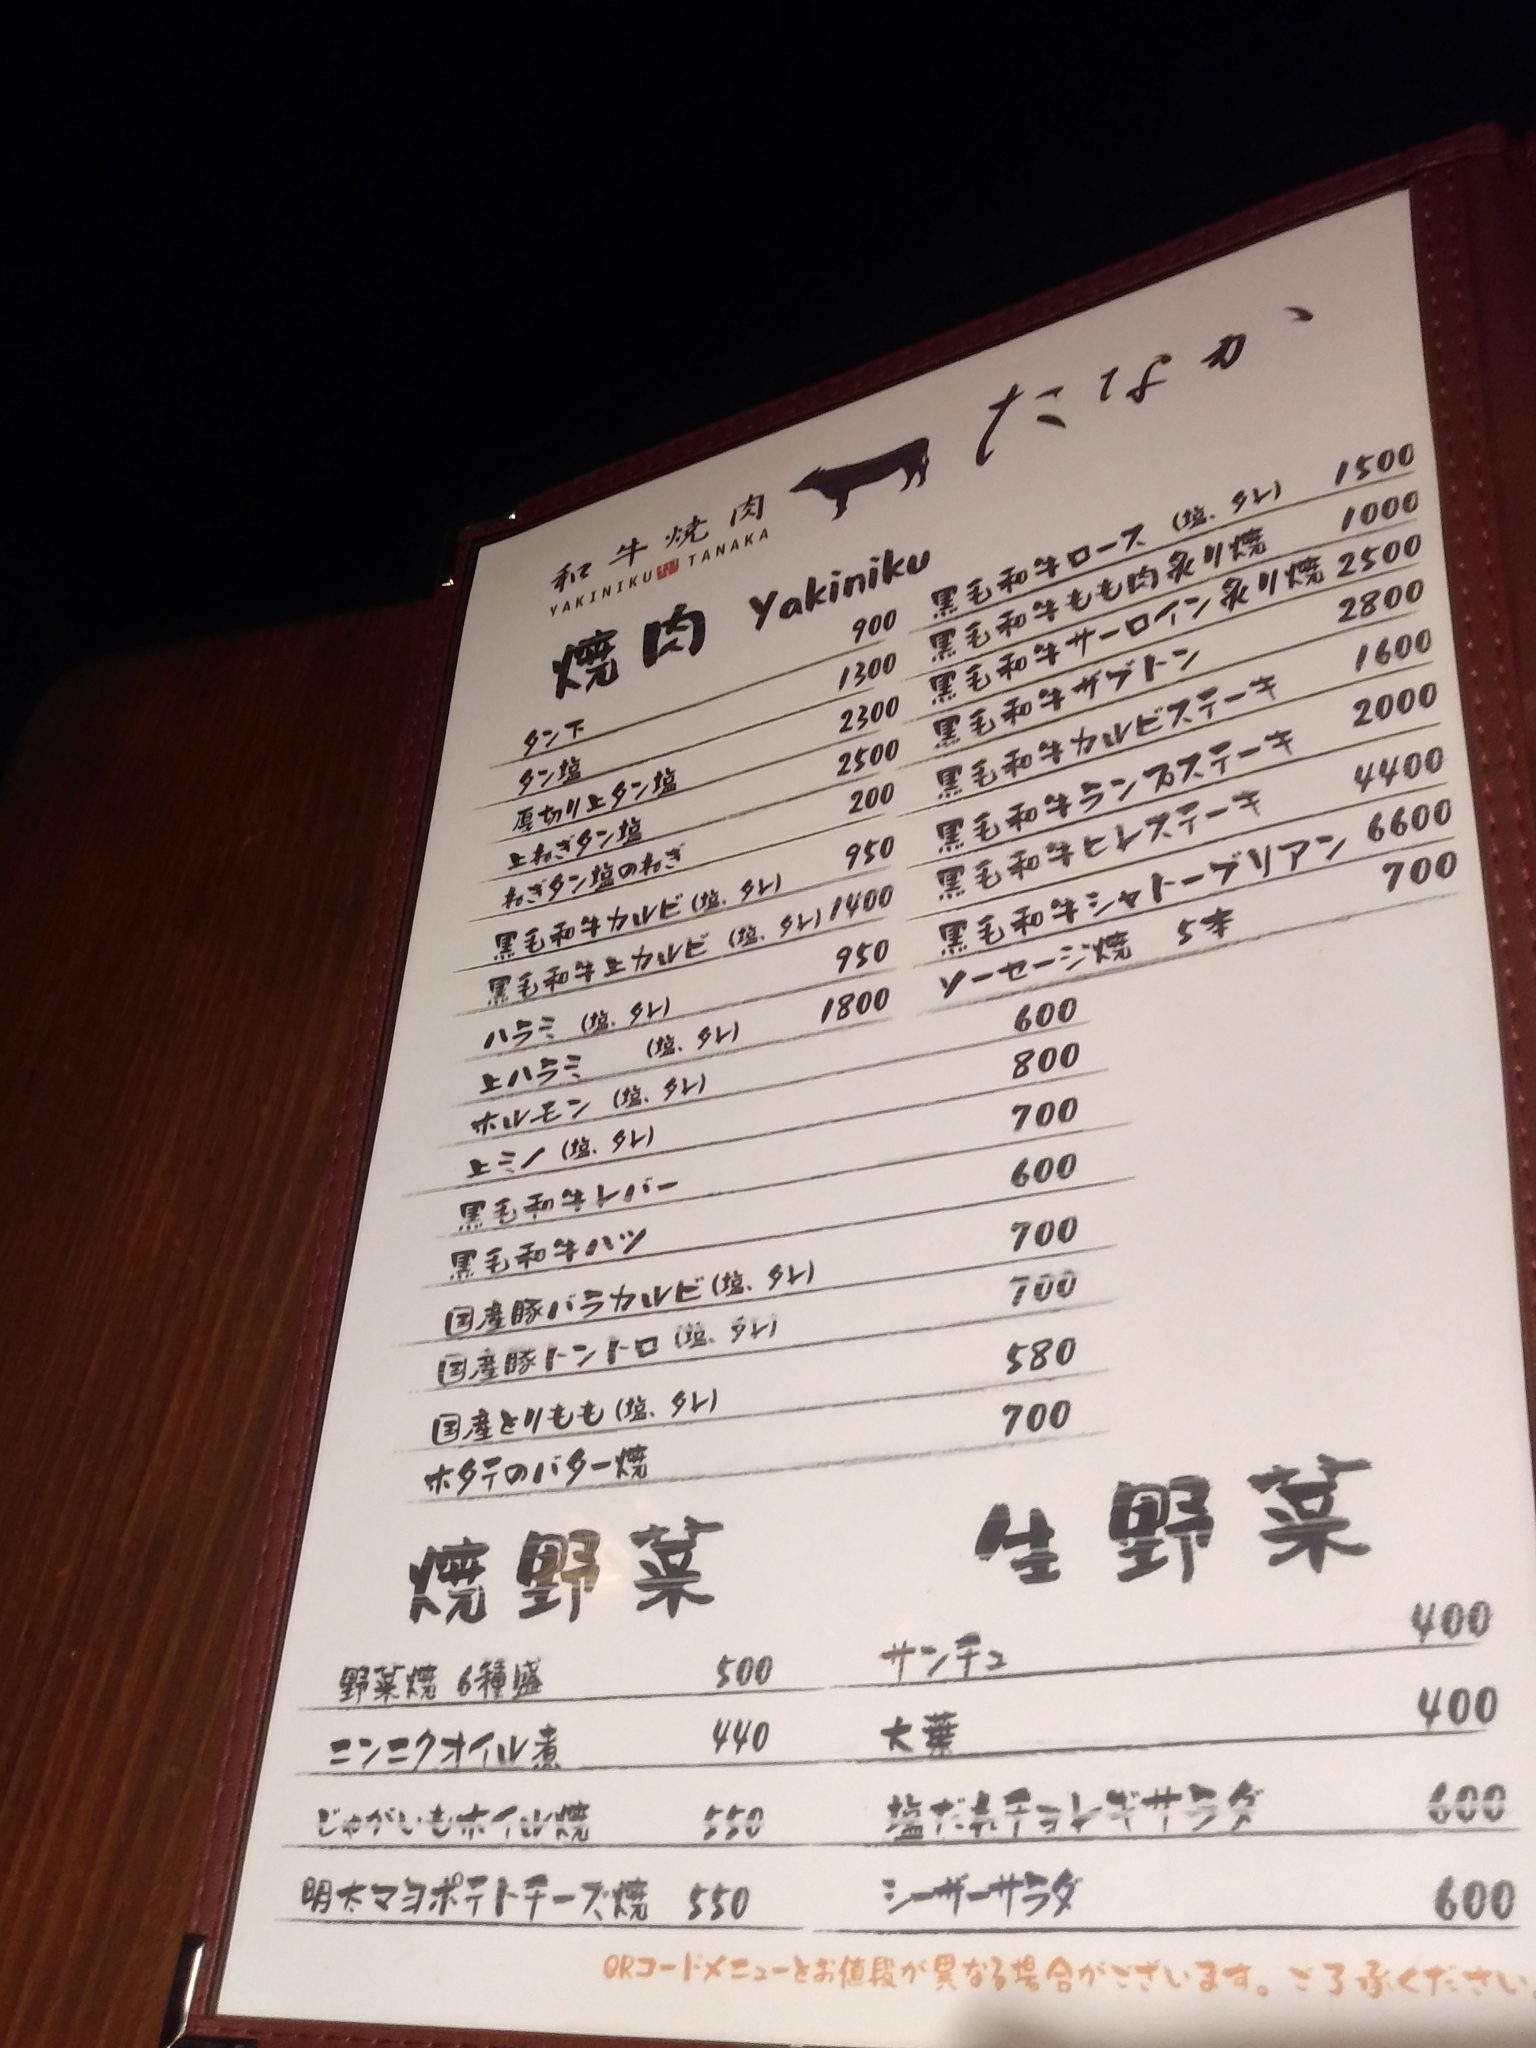 和牛焼肉 たなか
YAKINIKU TANAKA
焼肉 Yakiniku
タン下 900
タン塩 1300
厚切り上タン塩 2300
上ねぎタン塩 2500
ねぎタン塩のねぎ 200
黒毛和牛カルビ(塩、タレ) 950
黒毛和牛上カルビ(塩、タレ) 1400
ハラミ(塩、タレ) 950
上ハラミ(塩、タレ) 1800
ホルモン(塩、タレ) 600
上ミノ(塩、タレ) 800
黒毛和牛レバー 700
黒毛和牛ハツ 600
国産豚バラカルビ(塩、タレ) 700
国産豚トントロ(塩、タレ) 700
国産とりもも(塩、タレ) 580
ホタテのバター焼 700
黒毛和牛ロース(塩、タレ) 1500
黒毛和牛もも肉炙り焼 1000
黒毛和牛サーロイン炙り焼 2500
黒毛和牛ザブトン 2800
黒毛和牛カルビステーキ 1600
黒毛和牛ランプステーキ 2000
黒毛和牛ヒレステーキ 4400
黒毛和牛シャトーブリアン 6600
ソーセージ焼 5本 700
焼野菜
野菜焼 6種盛 500
ニンニクオイル煮 440
じゃがいもホイル焼 550
明太マヨポテトチーズ焼 550
生野菜
サンチュ 400
大葉 400
塩だれチョレギサラダ 600
シーザーサラダ 600
QRコードメニューとお値段が異なる場合がございます。ご了承ください。